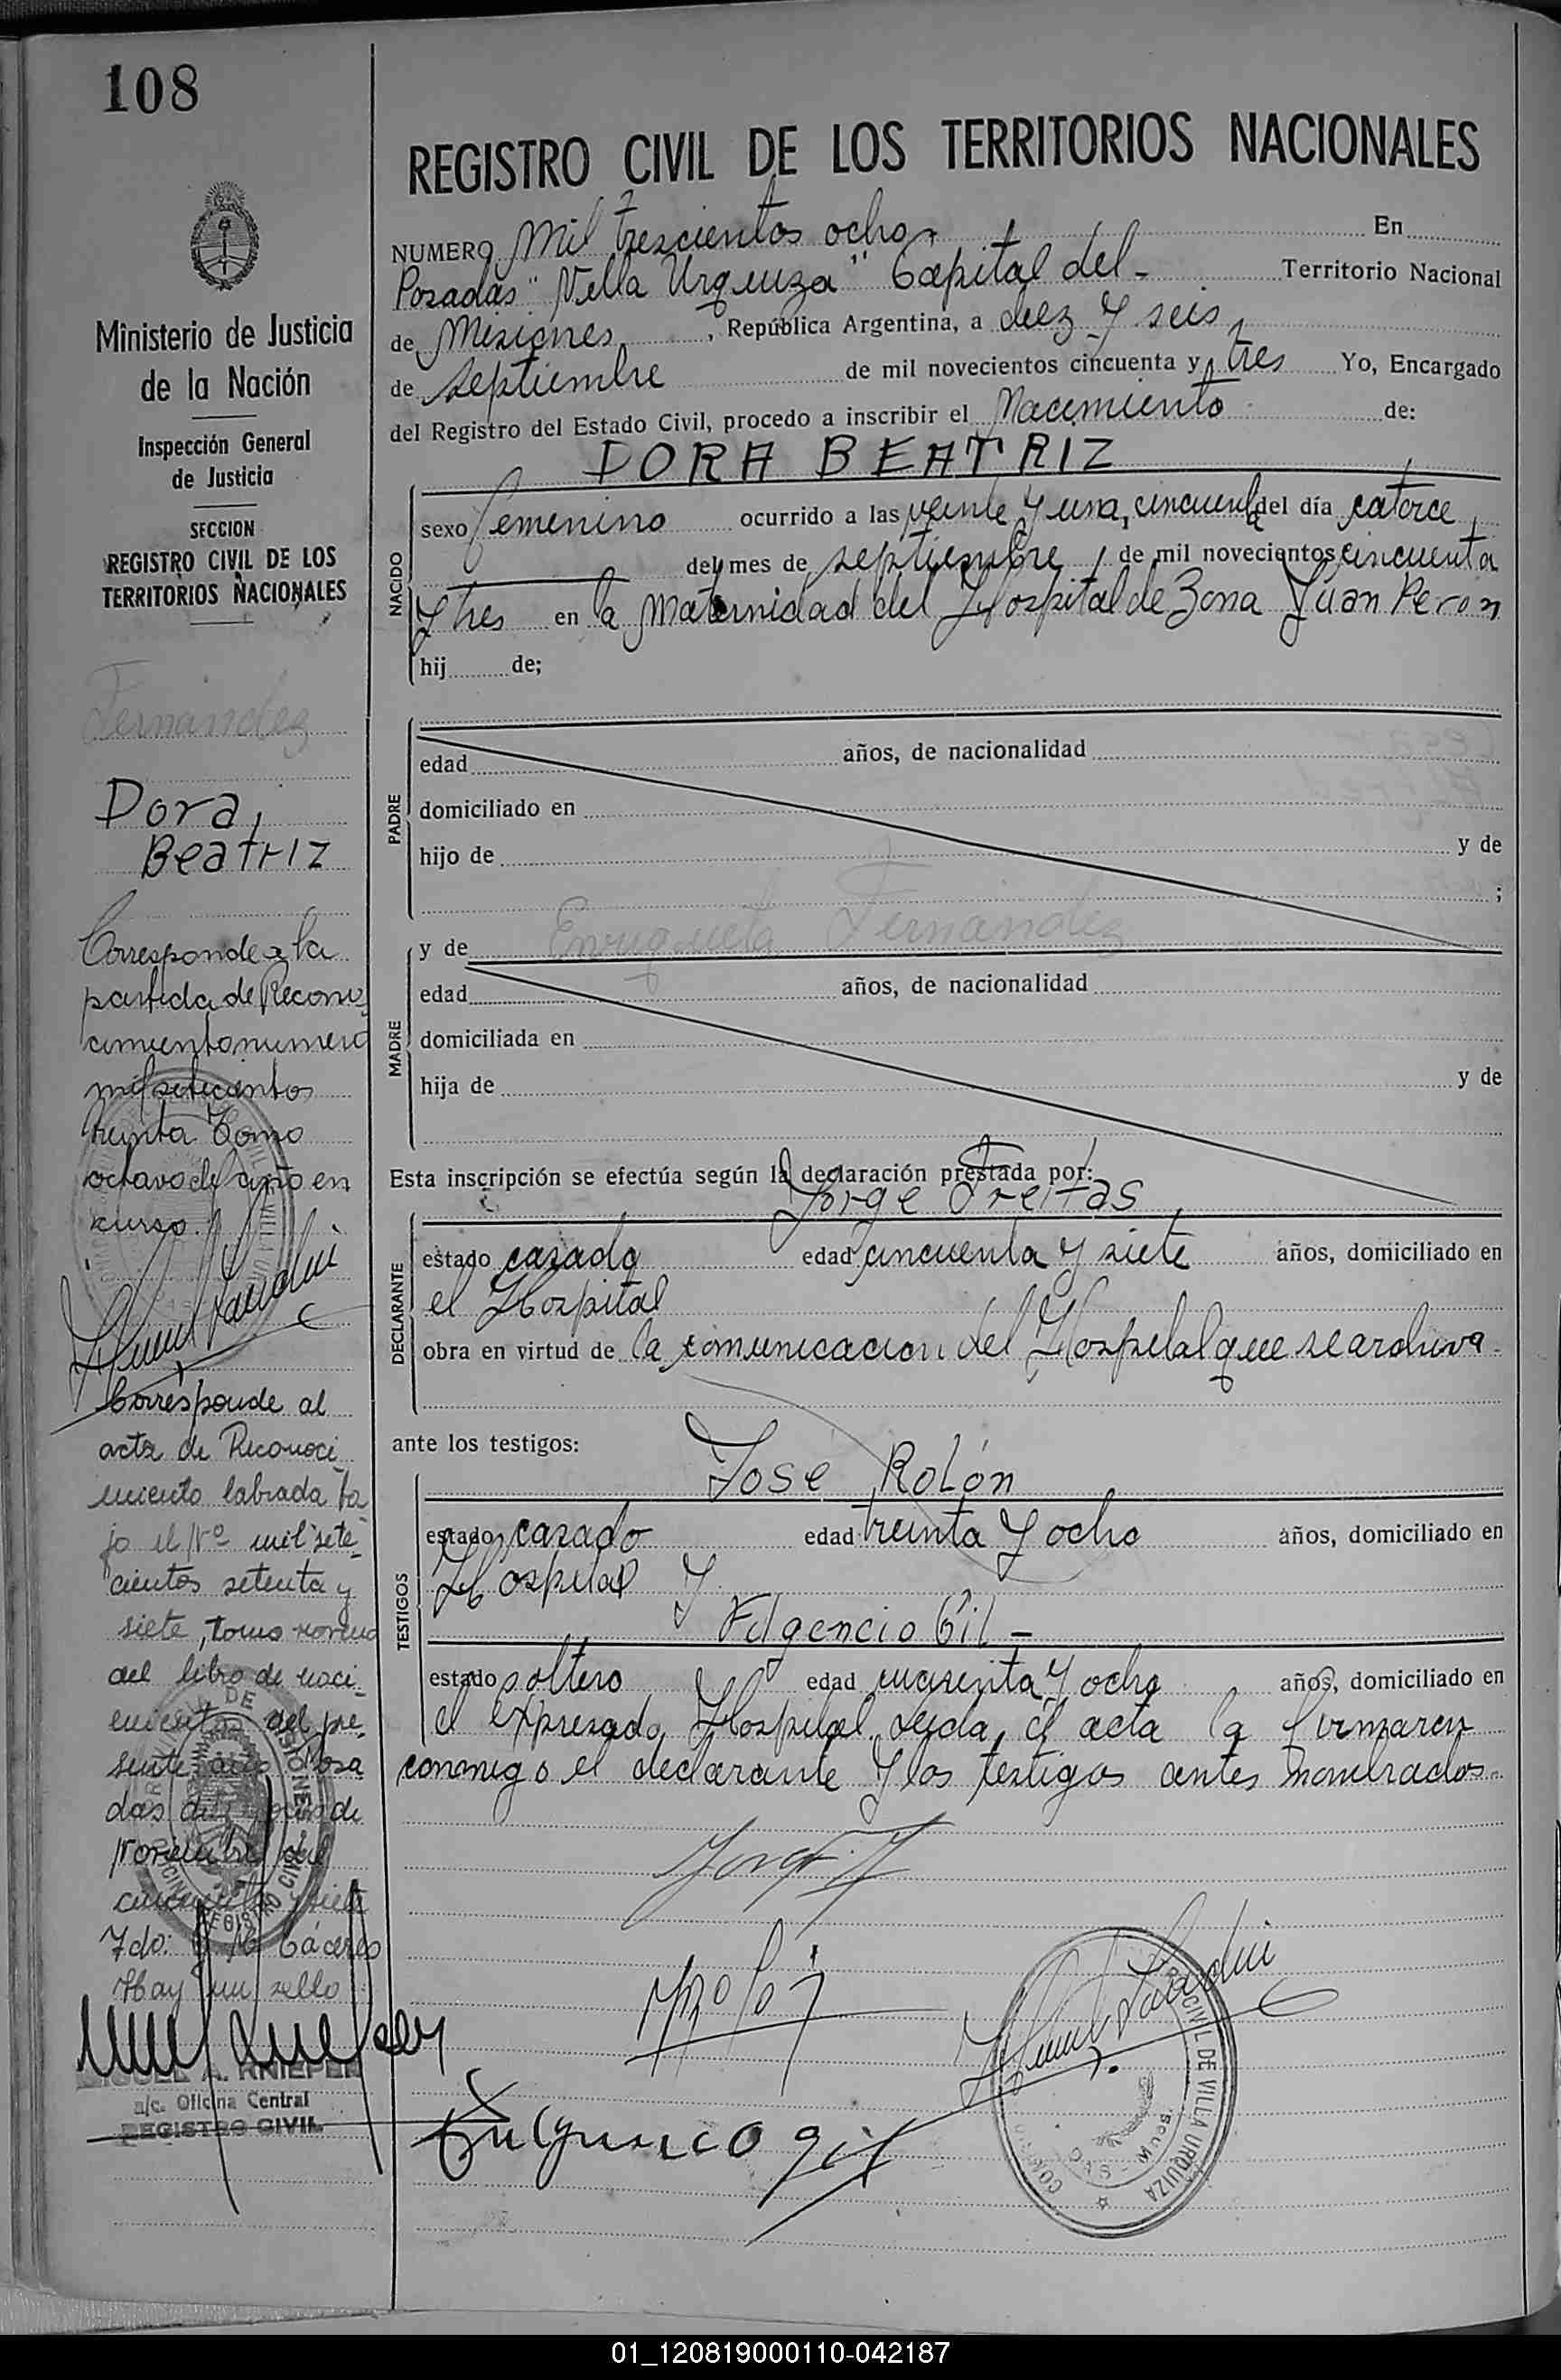 108
REGISTRO CIVIL DE LOS TERRITORIOS NACIONALES
NUMERO Mil trescientos ocho En
Posadas "Villa Urquiza" Capital del - Territorio Nacional
de Misiones, República Argentina, a diez y seis
de septiembre de mil novecientos cincuenta y tres Yo, Encargado
del Registro del Estado Civil, procedo a inscribir el Nacimiento de:
DORA BEATRIZ
NACIDO
sexo femenino ocurrido a las veinte y una, cincuenta del día catorce
del mes de septiembre, de mil novecientos cincuenta
y tres en la Maternidad del Hospital de Zona Juan Peron
hij de;
PADRE
edad años, de nacionalidad
domiciliado en
hijo de y de
;
y de Enriqueta Fernandez
MADRE
edad años, de nacionalidad
domiciliada en
hija de y de
Esta inscripción se efectúa según la declaración prestada por:
Jorge Freitas
DECLARANTE
estado casado edad cincuenta y siete años, domiciliado en
el Hospital
obra en virtud de la comunicacion del Hospital que se archiva
ante los testigos:
José Rolón
TESTIGOS
estado casado edad treinta y ocho años, domiciliado en
Hospital y
Fulgencio Gil -
estado soltero edad cuarenta y ocho años, domiciliado en
el expresado Hospital. Leida el acta la firmaron
conmigo el declarante y los testigos antes nombrados
Fulgencio gil
CIVIL DE VILLA URQUIZA
Ministerio de Justicia
de la Nación
Inspección General
de Justicia
SECCION
REGISTRO CIVIL DE LOS
TERRITORIOS NACIONALES
Fernandez
Dora,
Beatriz
Corresponde a la
partida de Recono
cimiento numero
mil setecientos
treinta Tomo
octavo del año en
curso.
Corresponde al
acta de Reconoci_
miento labrada ba_
jo el Nº mil sete_
cientos setenta y
siete, tomo noveno
del libro de naci_
mientos del pre_
sente año Posa
das de
noviembre del
cincuenta y siete
Fdo: Cáceres
Hay un sello
MIGUEL A. KNIEPER
a/c. Oficina Central
REGISTRO CIVIL
01_120819000110-042187